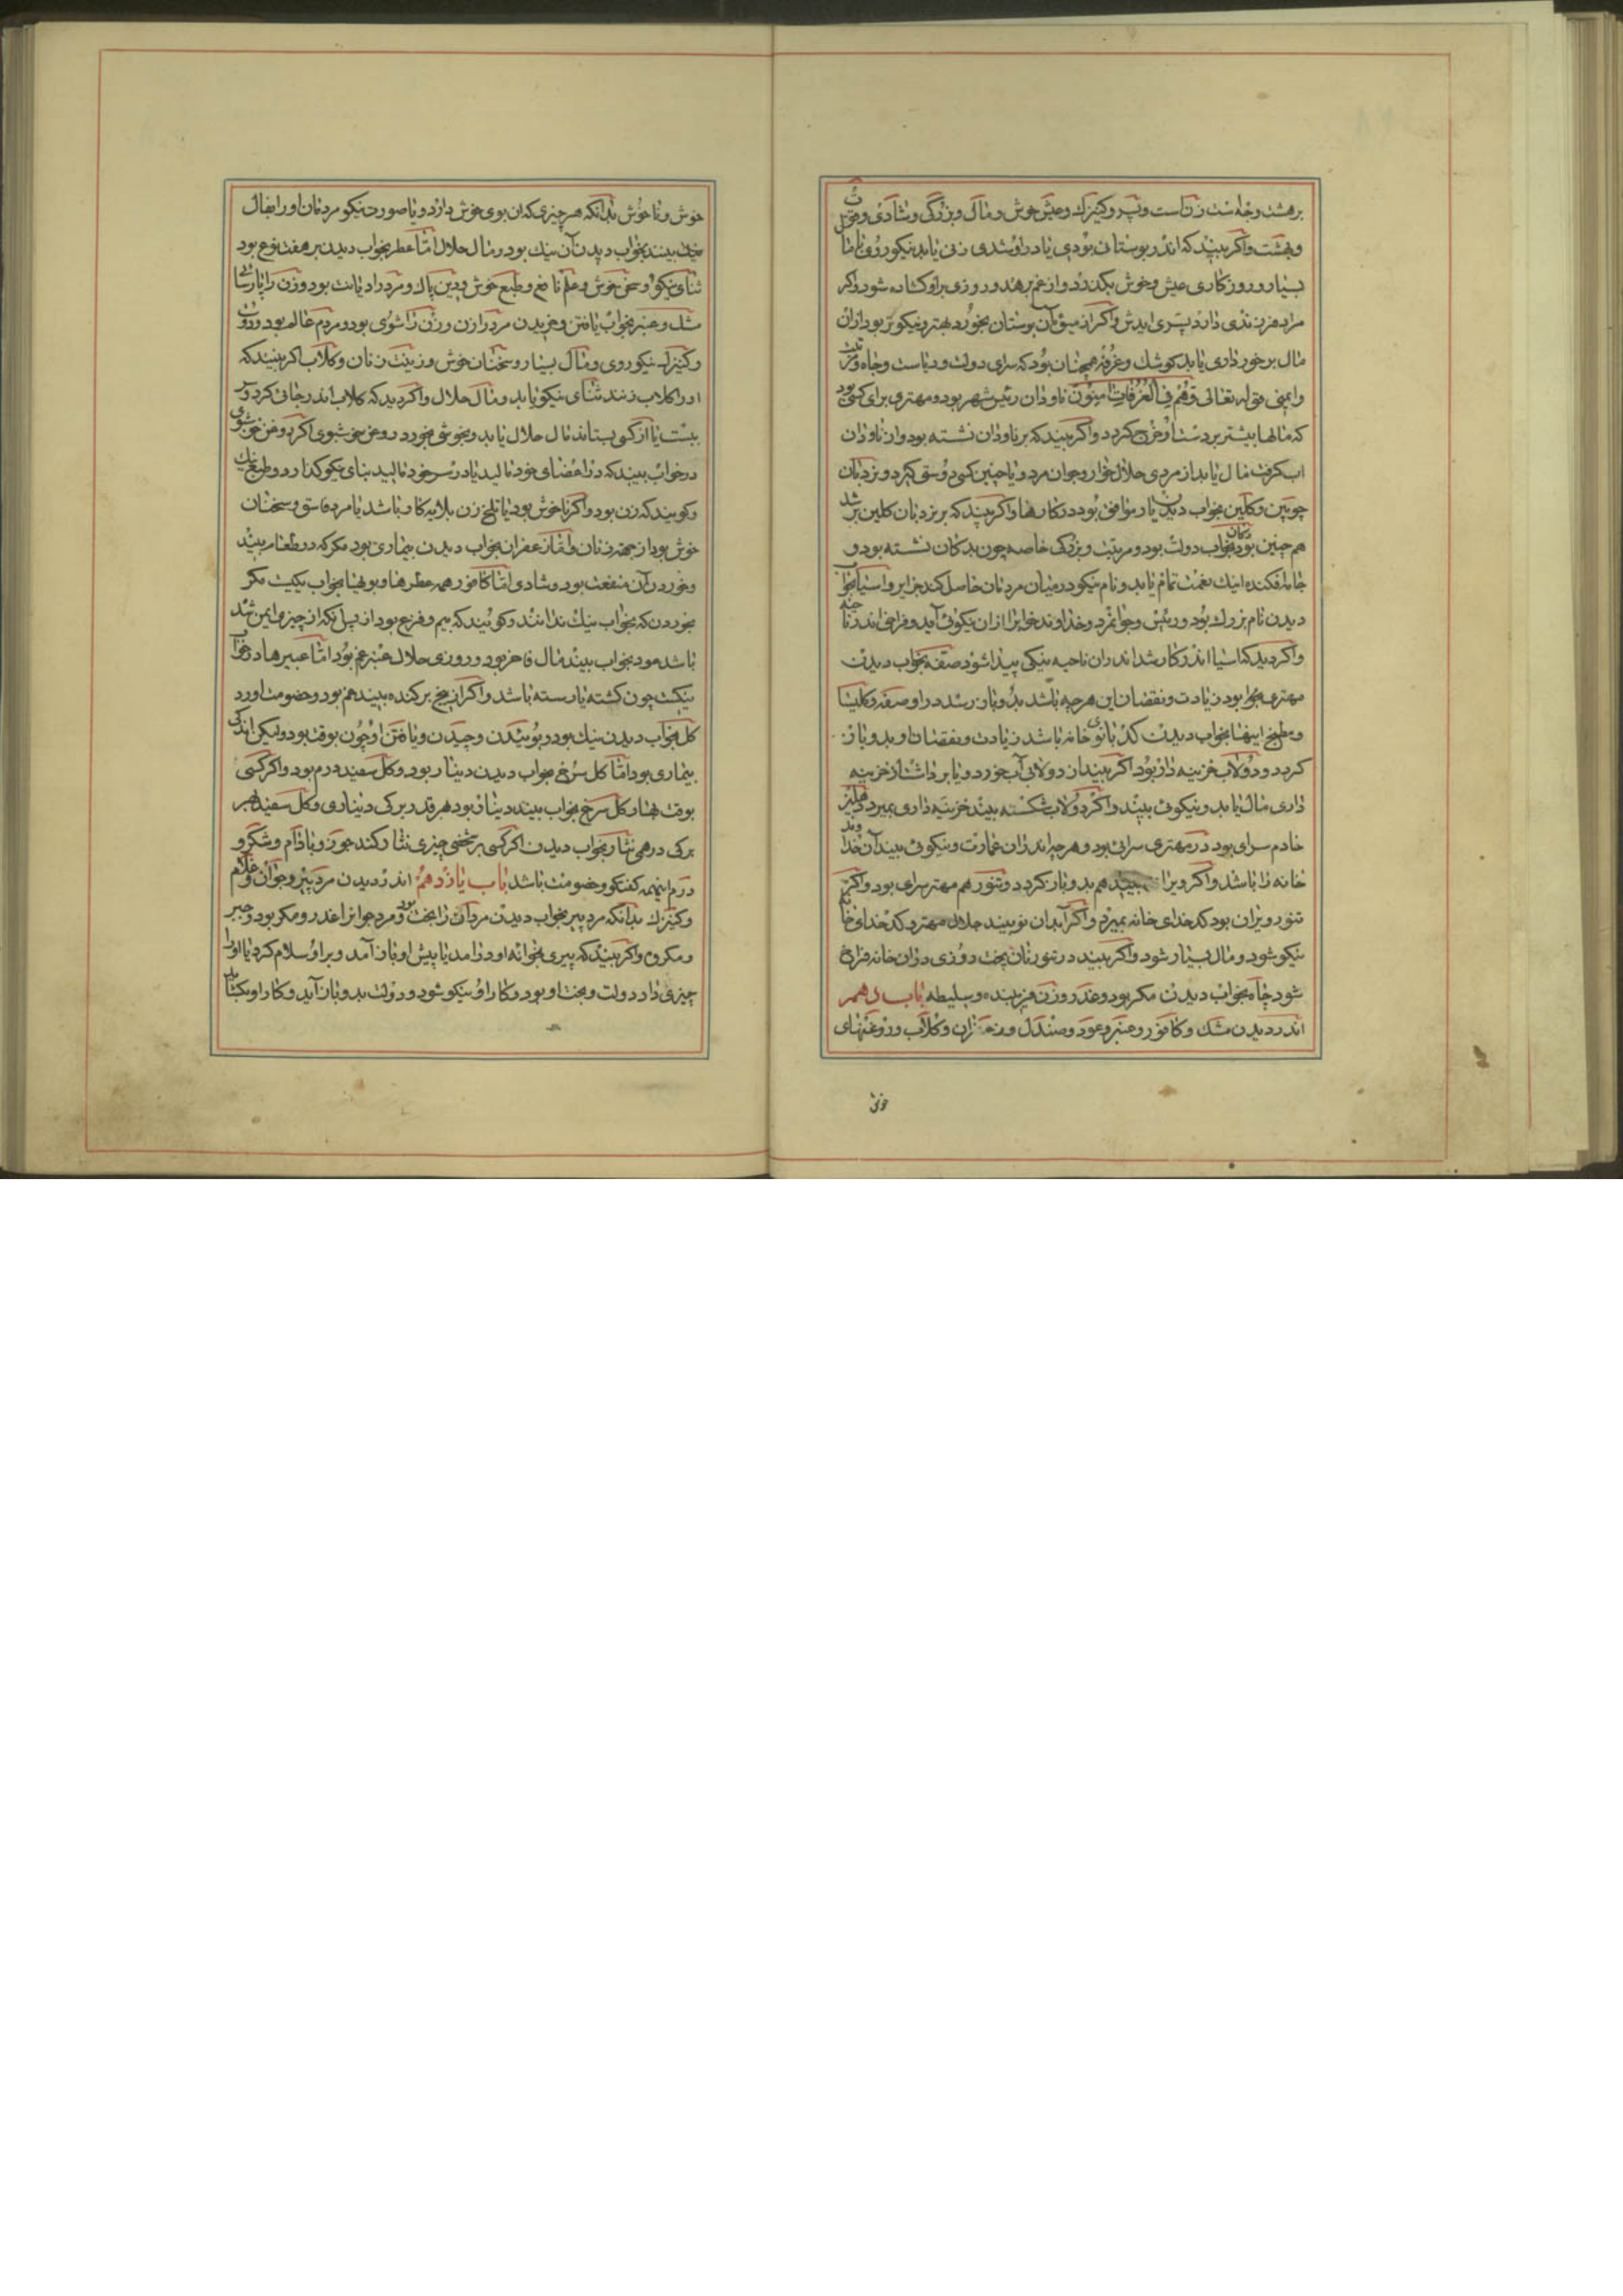 برهشت وجه است زن است و پسر و کنیزك وعیش خوش ومال وبزرگی وشادی وخوشی
وبهشت واکر بیند که اندر بوستانی بودی یا در او شدی زنی یابد نیکوروی باما
بسیار وروزکاری عیش وخوش بکذرد واز غم برهد ودر روزی بر او کشاده شود واکر
مراد فرزندی دارد پسری ایدش واکر از میوهٔ آن بوستان بخورد بهتر ونیکوتر بود ازان
مال برخورداری یابد کوشك وغرفه همچنان بود که سرای دولت وریاست وجاه ومرتبت
وایمنی قوله تعالی وهم فی الغرفات امنون ناودان رئیس شهر بود ومهتری برای کسی بود
که مالها بیشتر بر دست او خرج کردد واکر بیند که بر ناودان نشسته بود واز ناودان
اب کرفت مال یابد از مردی حلال خوار وجوان مرد ویا چنین کسی دوستی کیرد ونردبان
چوبین وکلین بخواب دیدن یار موافق بود در کارها واکر بیند که بر نردبان کلین بر شد
هم چنین بود دکان بخواب دولت بود ومرتبت وبزرکی خاصه چون بدکان نشسته بود و
جامه افکنده اینك نعمت تمام یابد ونام نیکو در میان مردمان حاصل کند جز ایرو اسیا بخواب
دیدن نام بزرك بود ورئیس وجوانمرد وخداوند خواب را ازان نیکوئی آید وفراخی اندر ناحیه
واکر دید که اسیا اندر کار شد اندران ناحیه نیکی پیدا شود صفه بخواب دیدن
مهتری بود زیادت ونقصان این هرچه باشد بدو باز رسد در او صفه وکلیسا
ومطبخ اینها بخواب دیدن کدبانوی خانه باشد زیادت ونقصان او بدو باز
کردد ودولاب خزینه دار بود اکر بیند از دولابی آب خورد ویا برداشت از خزینه
داری مال یابد ونیکوئی بیند واکر دولاب شکسته بیند خزینه داری بمیرد دهلیز
خادم سرای بود در مهتری سرای بود وهرچه اندران عمارت ونیکوئی بیند آن خداوند
خانه را باشد واکر ویران بیند هم بدو باز کردد وتنور هم مهتر سرای بود واکر
تنور ویران بود کدخدای خانه بمیرد واکر آبدان نو بیند حلال مهتر وکدخدای خانه
نیکو شود ومال بسیار شود واکر بیند در تنور نان پخت روزی دران خانه فراخ
شود چاه بخواب دیدن مکر بود وغدر وزن فریبنده وسلیطه باب دهم
اندر دیدن مشك وکافور وعنبر وعود وصندل وزعفران وکلاب وروغنهای
خوش
خوش وناخوش بدانکه هر چیزی که ان بوی خوش دارد ویا صورت نیکو مردمان او را بفال
نیك بینند بخواب دیدن آن نیك بود ومال حلال امّا عطر بخواب دیدن بر هفت نوع بود
ثنای نیکو وسخن خوش وعلم نافع وطبع خوش ودین پاك ومرد را دیانت بود وزن را پارسائی
مشك وعنبر بخواب یافتن وخریدن مرد را زن وزن را شوی بود ومردم عالم بود
وکنیزك نیکوروی ومال بسیار وسخنان خوش وزینت زنان وکلاب اکر بیند که
او را کلاب زنند ثنای نیکو یابد ومال حلال واکر دید که کلاب اندر جائی کرد
یا از کسی بستاند مال حلال یابد وبخوشی بخورد روغن خوشبوی اکر روغن خوشبوی
در خواب بیند که در اعضای خود مالید یا در سر خود مالید ثنای نیکو کذارد وطبع نیك
وکویند که زن بود واکر ناخوش بود یا تلخ زن بلایه کار باشد یا مرد فاسق وسخنان
خوش بود از جهت زنان وامّا زعفران بخواب دیدن بیماری بود مکر که در طعام بیند
وخوردن آن منفعت بود وشادی امّا کافور همه عطرها وبویها بخواب نیکست مکر
بخوردن که بخواب نیك ندانند وکویند که بیم وفزع بود از پس آنکه از چیزی ایمن شد
باشد عود بخواب بیند مال فاخر بود وروزی حلال عنبر غم بود امّا عبیرها در خواب
نیکست چون کشته یا رسته باشد واکر از بیخ برکنده بیند هم بود وخصومت اورد
کل بخواب دیدن نیك بود وبوئیدن وچیدن ویافتن او چون بوقت بود ولیکن اندکی
بیماری بود امّا کل سرخ بخواب دیدن دینار بود وکل سفید درم بود واکر کسی
بوقت بهار کل سرخ بخواب بیند دینار بود هر قدر برکی دیناری وکل سفید هر
برکی درهمی نثار بخواب دیدن اکر کسی بر شخصی چیزی نثار کند جوز وبادام وشکر و
درم اینهمه کفتکو وخصومت باشد باب یازدهم اندر دیدن مرد پیر وجوان وغلام
وکنیزك بدانکه مرد پیر بخواب دیدن مردان را بخت بود ومرد جوان را غدر ومکر بود وجبر
ومکروه واکر بیند که پیری بخانه او در امد یا پیش او باز آمد وبر او سلام کرد یا او را
چیزی داد دولت وبخت او بود وکار او نیکو شود ودولت بدو باز آید وکار او بکشاید